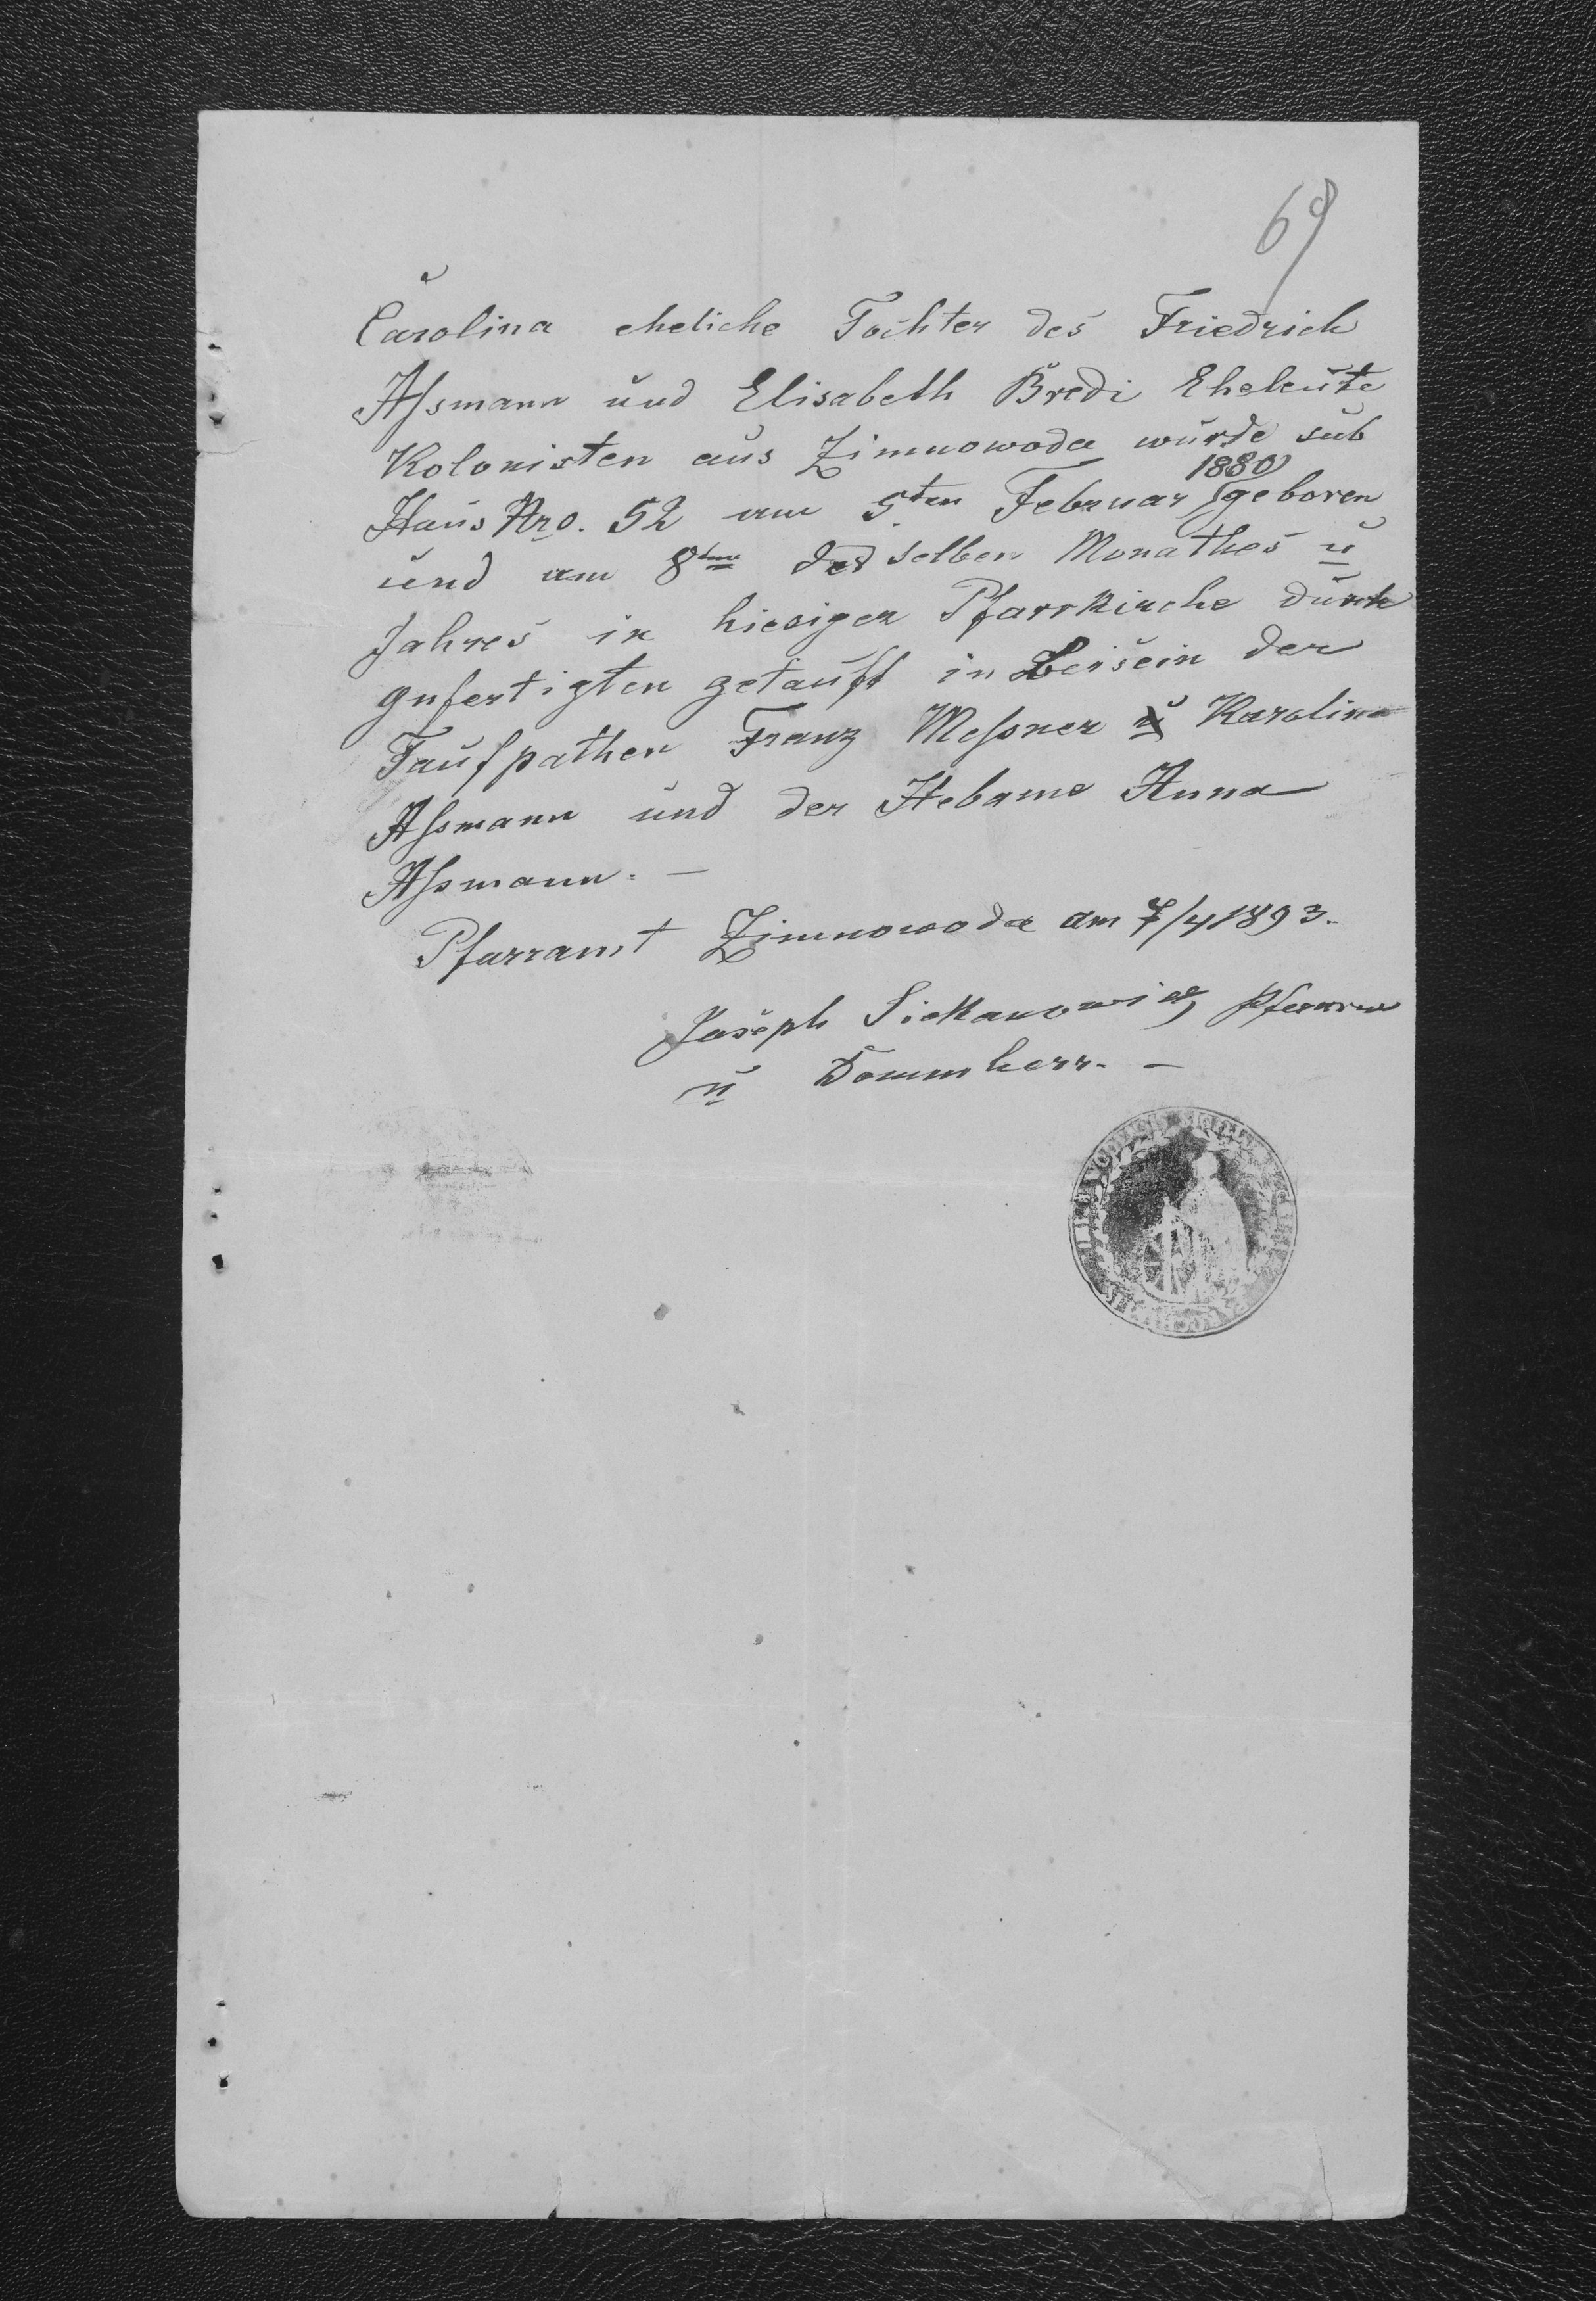 69
Carolina eheliche Tochter des Friedrich
Assmann und Elisabeth Bredi Eheleute
Kolonisten aus Zimnowoda wurde sub
1880
Haus Nro. 52 am 5ten Februar geboren
und am 8ten desselben Monathes u
Jahres in hiesiger Pfarrkirche durch
gefertigten getauft in Beisein der
Taufpathen Franz Messner u Karolina
Assmann und der Hebame Anna
Assmann. —
Pfarramt Zimnowoda am 7/4 1893.
Joseph Pfarrer
u Dommherr. —